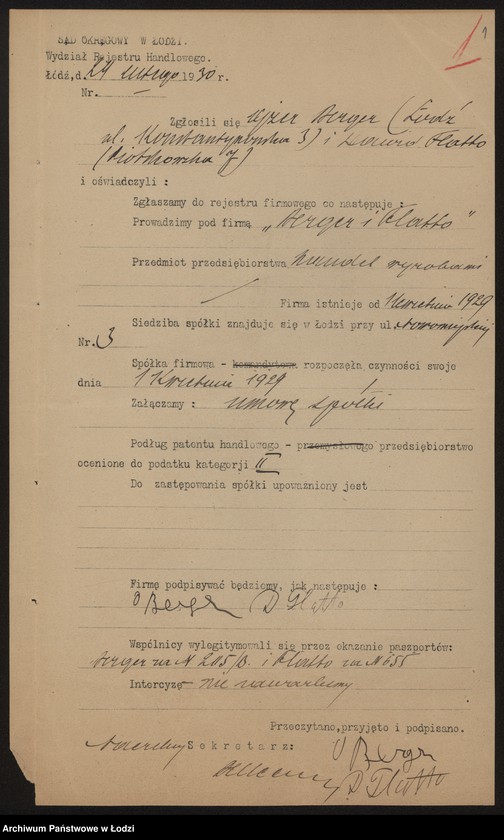 SĄD OKRĘGOWY W ŁODZI.
Wydział Rejestru Handlowego.
Łódź, d. 24 lutego 1930 r.
Nr. —
Zgłosili się Berger (Łódź
ul. Konstantynowska 3) i Dawid Flatto
(Piotrkowska 7)
i oświadczyli :
Zgłaszamy do rejestru firmowego co następuje :
Prowadzimy pod firmą „Berger i Flatto"
Przedmiot przedsiębiorstwa handel wyrobami
Firma istnieje od 1 kwietnia 1929
Siedziba spółki znajduje się w Łodzi przy ul. Nowomiejskiej
Nr. 3
Spółka firmowa - komandytowa rozpoczęła czynności swoje
dnia 1 kwietnia 1929
Załączamy : umowę spółki
Podług patentu handlowego - przemysłowego przedsiębiorstwo
ocenione do podatku kategorji II
Do zastępowania spółki upoważniony jest
Firmę podpisywać będziemy, jak następuje :
Berger D Flatto
Wspólnicy wylegitymowali się przez okazanie paszportów:
Berger za N 205/B. i Flatto za N 655
Intercyzę nie zawarliśmy
Przeczytano, przyjęto i podpisano.
Sekretarz:
Berger
D. Flatto
Archiwum Państwowe w Łodzi